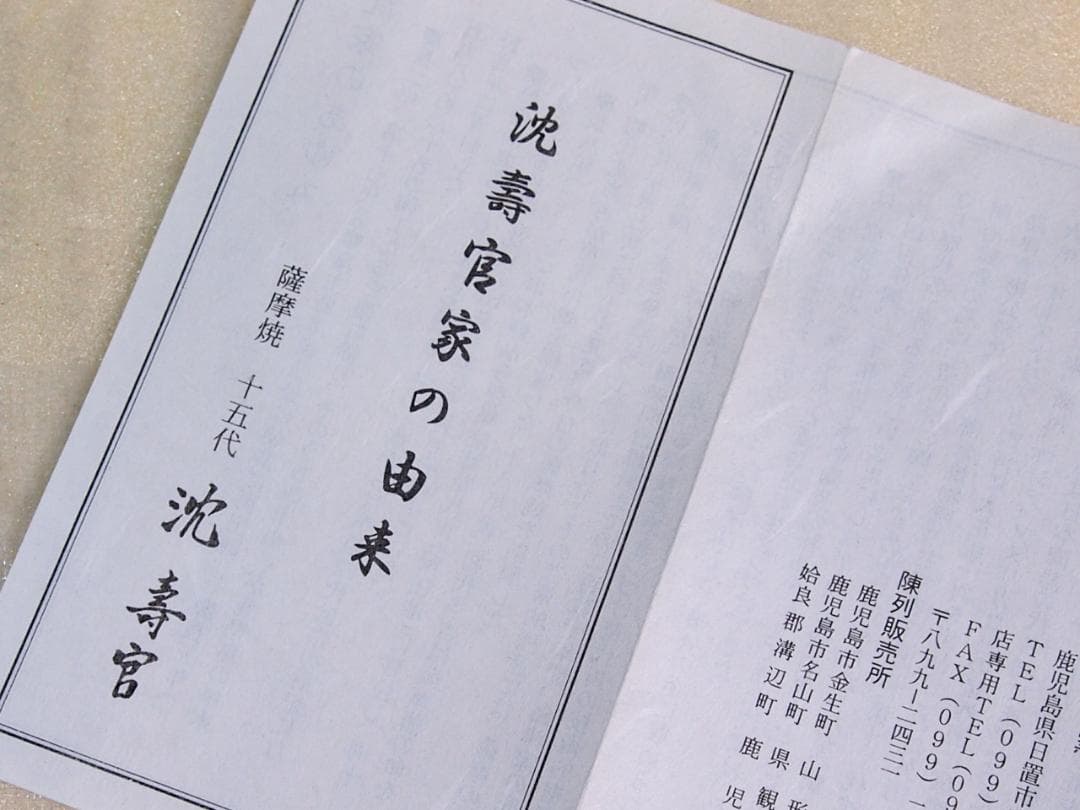 沈壽官家の由来
薩摩焼 十五代 沈壽官
鹿児島県日置市
TEL(099)
店専用TEL(09
FAX(099)
〒八九九ー二四三一
陳列販売所
鹿児島市金生町 山形
鹿児島市名山町 県観
姶良郡溝辺町 鹿児